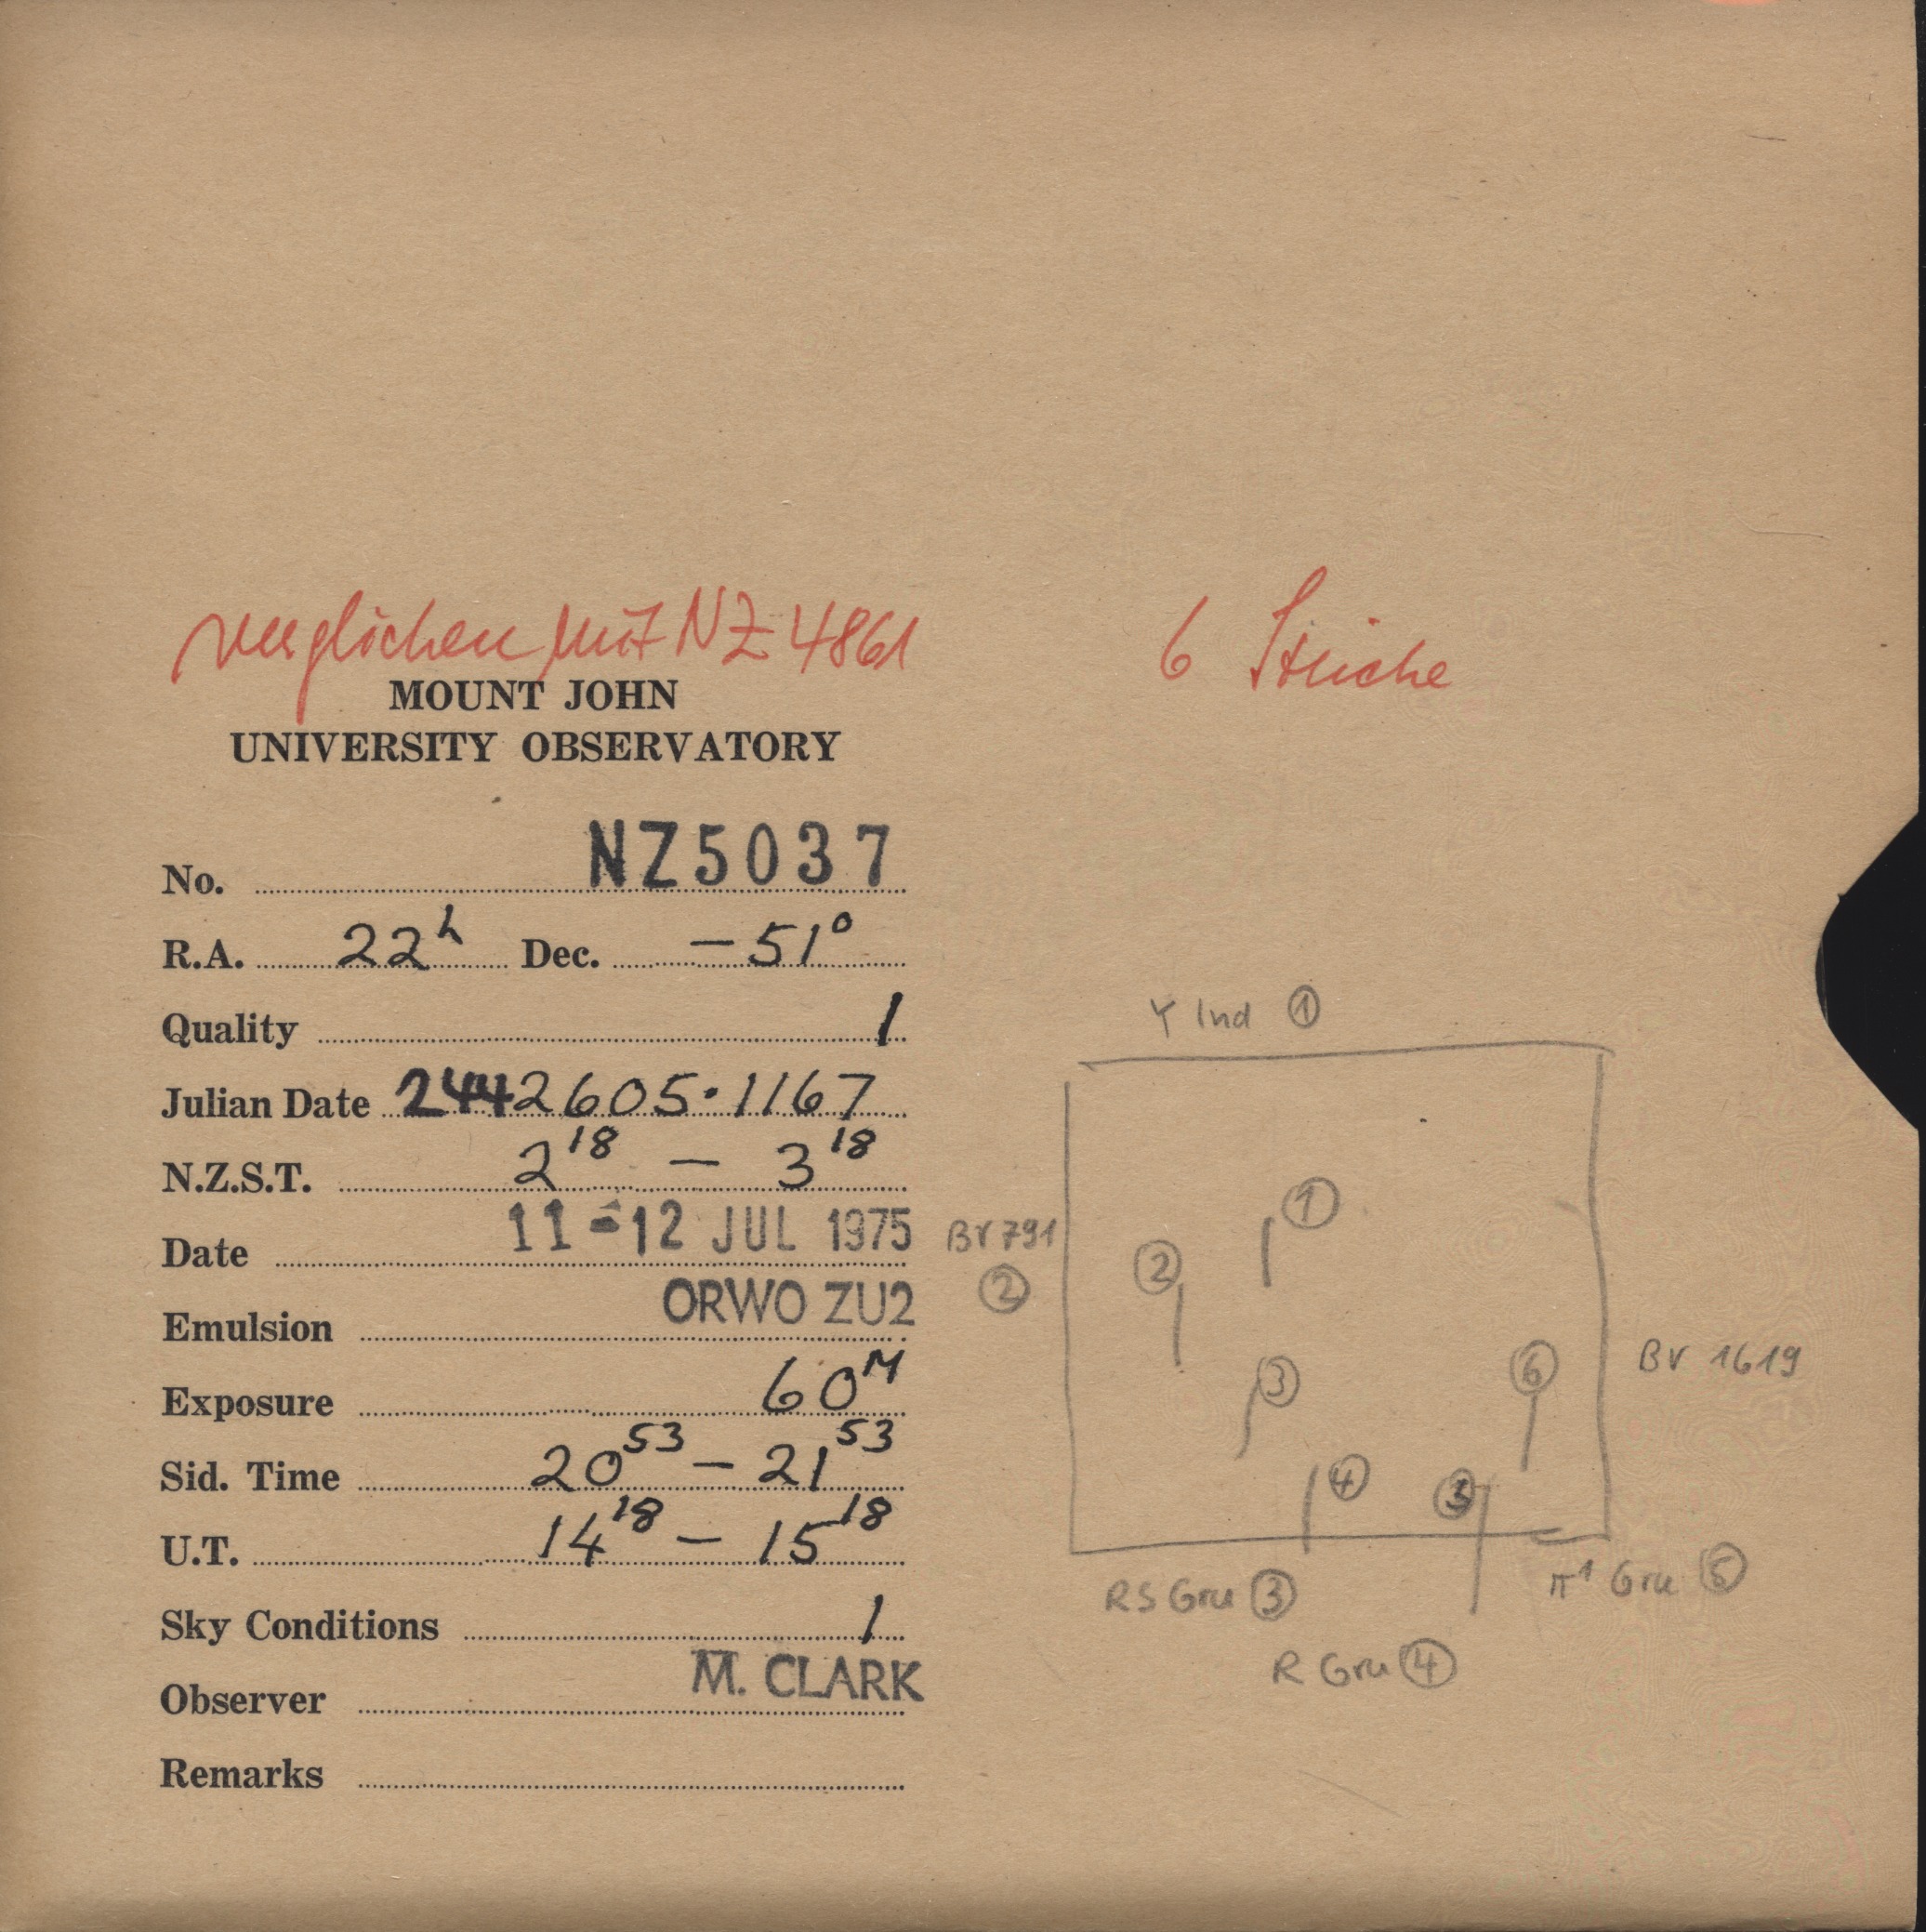 verglichen mit NZ 4861
6 Striche
MOUNT JOHN
UNIVERSITY OBSERVATORY
No. NZ5037
R.A. 22h Dec. -51°
Quality 1
Julian Date 2442605.1167
N.Z.S.T. 2 18 - 3 18
Date 11-12 JUL 1975
Emulsion ORWO ZU2
Exposure 60M
Sid. Time 20 53 - 21 53
U.T. 14 18 - 15 18
Sky Conditions 1
Observer M. CLARK
Remarks
Y Ind ①
①
BV 791
②
②
③
⑥
BV 1619
④
RS Gru ③
π¹ Gru ⑤
R Gru ④